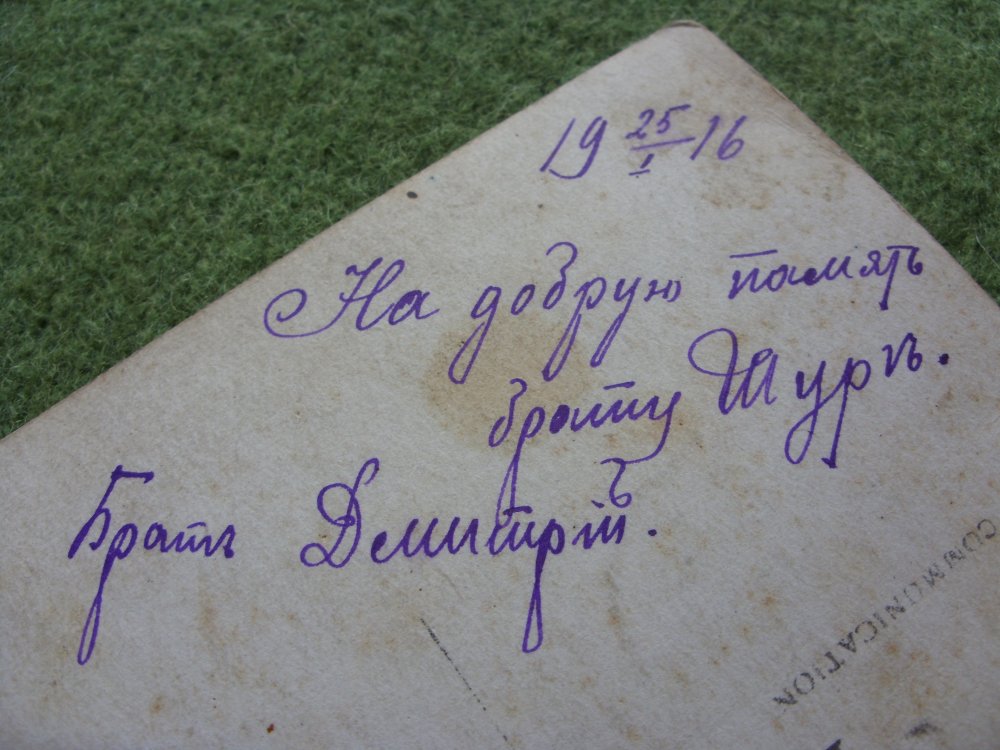 19 25/1 16
На добрую память
брату Шурѣ.
Братъ Дмитрій.
COMMUNICATION